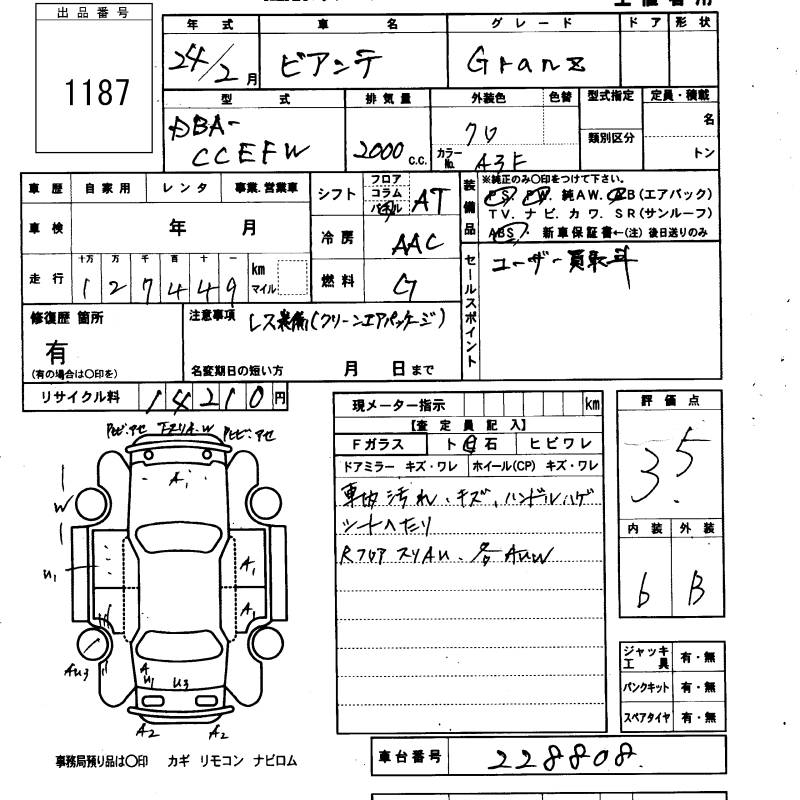 出品番号
1187
年式 車名 グレード ドア 形状
24/2月 ビアンテ Granz
型式 排気量 外装色 色替 型式指定 定員・積載
DBA-
CCEFW 2000 c.c. クロ カラーNo. A3F 類別区分 名
トン
車歴 自家用 レンタ 事業.営業車
車検 年 月
走行 十万 万 千 百 十 一 km マイル
127449
シフト フロア コラム パネル AT
冷房 AAC
燃料 G
装備品
※純正のみ〇印をつけて下さい。
PS. PW. 純AW. エB(エアバック)
TV. ナビ. カワ. SR(サンルーフ)
ABS. 新車保証書←(注)後日送りのみ
セールスポイント
ユーザー買取斗
修復歴 箇所
有
(有の場合は〇印を)
注意事項 レス装備(クリーンエアパッケージ)
名変期日の短い方 月 日まで
リサイクル料 14210円
現メーター指示 km
【査定員記入】
Fガラス ト日石 ヒビワレ
ドアミラー キズ・ワレ ホイール(CP) キズ・ワレ
車内汚れ、キズ、ハンドルハゲ
シートヘタリ
Rフロア スリAU、各AUW
評価点
3.5
内装 外装
6 B
ジャッキ工具 有・無
パンクキット 有・無
スペアタイヤ 有・無
A1
W
U1
A1
A1
AU3
A
U1 U3
A2 A2
事務局預り品は〇印 カギ リモコン ナビロム
車台番号 228808